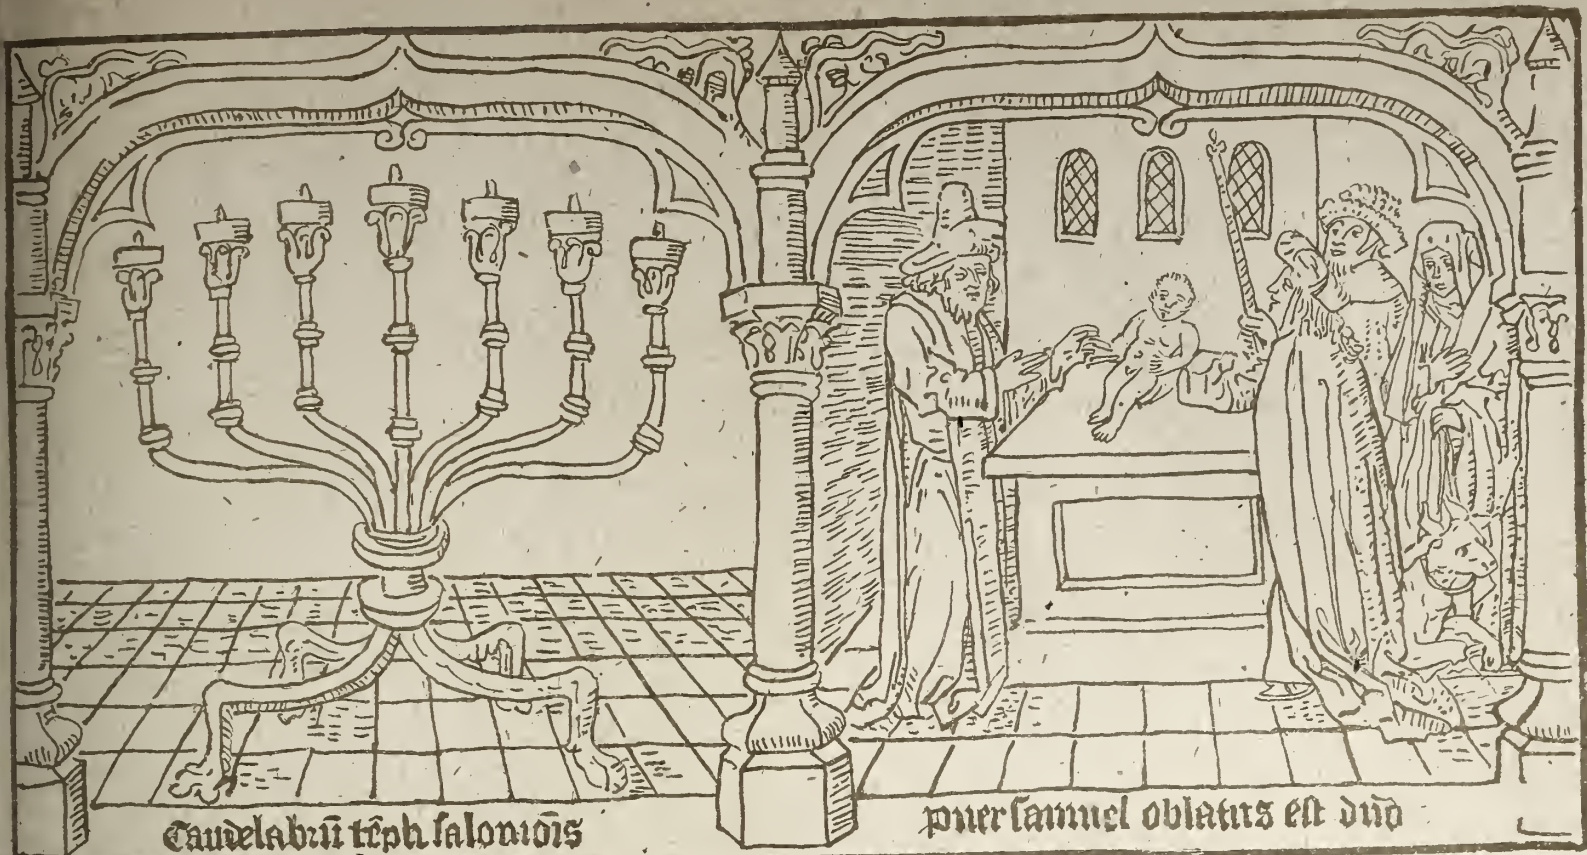 Candelabrū tēpli salomōis
puer samuel oblatus est dn̄o